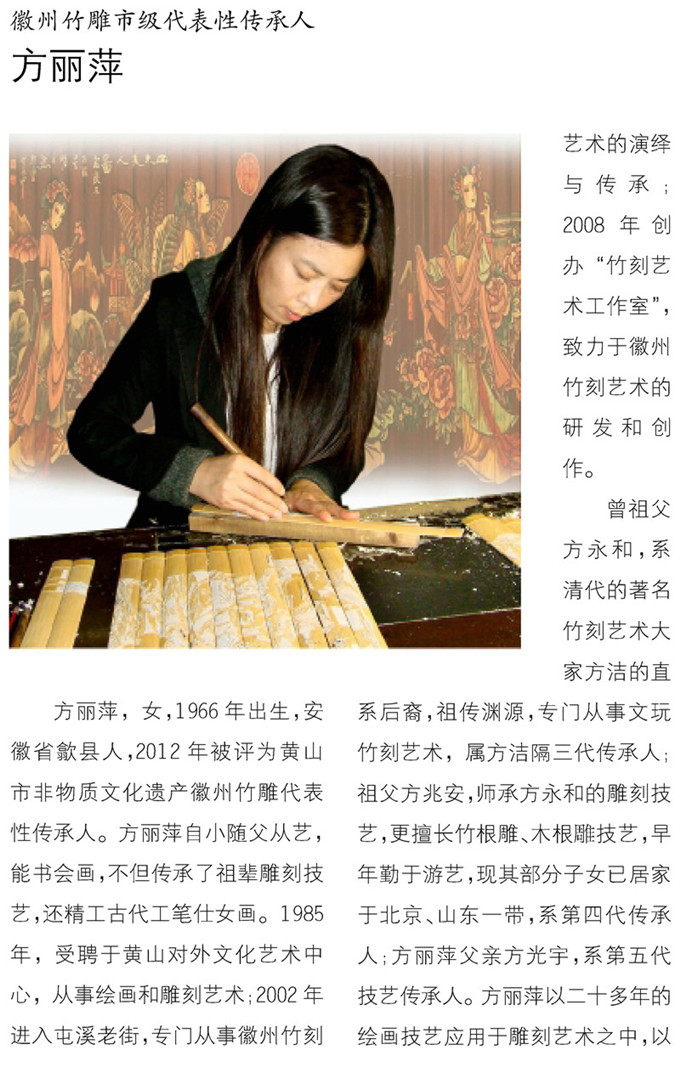 徽州竹雕市级代表性传承人
方丽萍
方丽萍，女，1966年出生，安
徽省歙县人，2012年被评为黄山
市非物质文化遗产徽州竹雕代表
性传承人。方丽萍自小随父从艺，
能书会画，不但传承了祖辈雕刻技
艺，还精工古代工笔仕女画。1985
年，受聘于黄山对外文化艺术中
心，从事绘画和雕刻艺术；2002年
进入屯溪老街，专门从事徽州竹刻
艺术的演绎
与传承；
2008年创
办“竹刻艺
术工作室”，
致力于徽州
竹刻艺术的
研发和创
作。
曾祖父
方永和，系
清代的著名
竹刻艺术大
家方洁的直
系后裔，祖传渊源，专门从事文玩
竹刻艺术，属方洁隔三代传承人；
祖父方兆安，师承方永和的雕刻技
艺，更擅长竹根雕、木根雕技艺，早
年勤于游艺，现其部分子女已居家
于北京、山东一带，系第四代传承
人；方丽萍父亲方光宇，系第五代
技艺传承人。方丽萍以二十多年的
绘画技艺应用于雕刻艺术之中，以